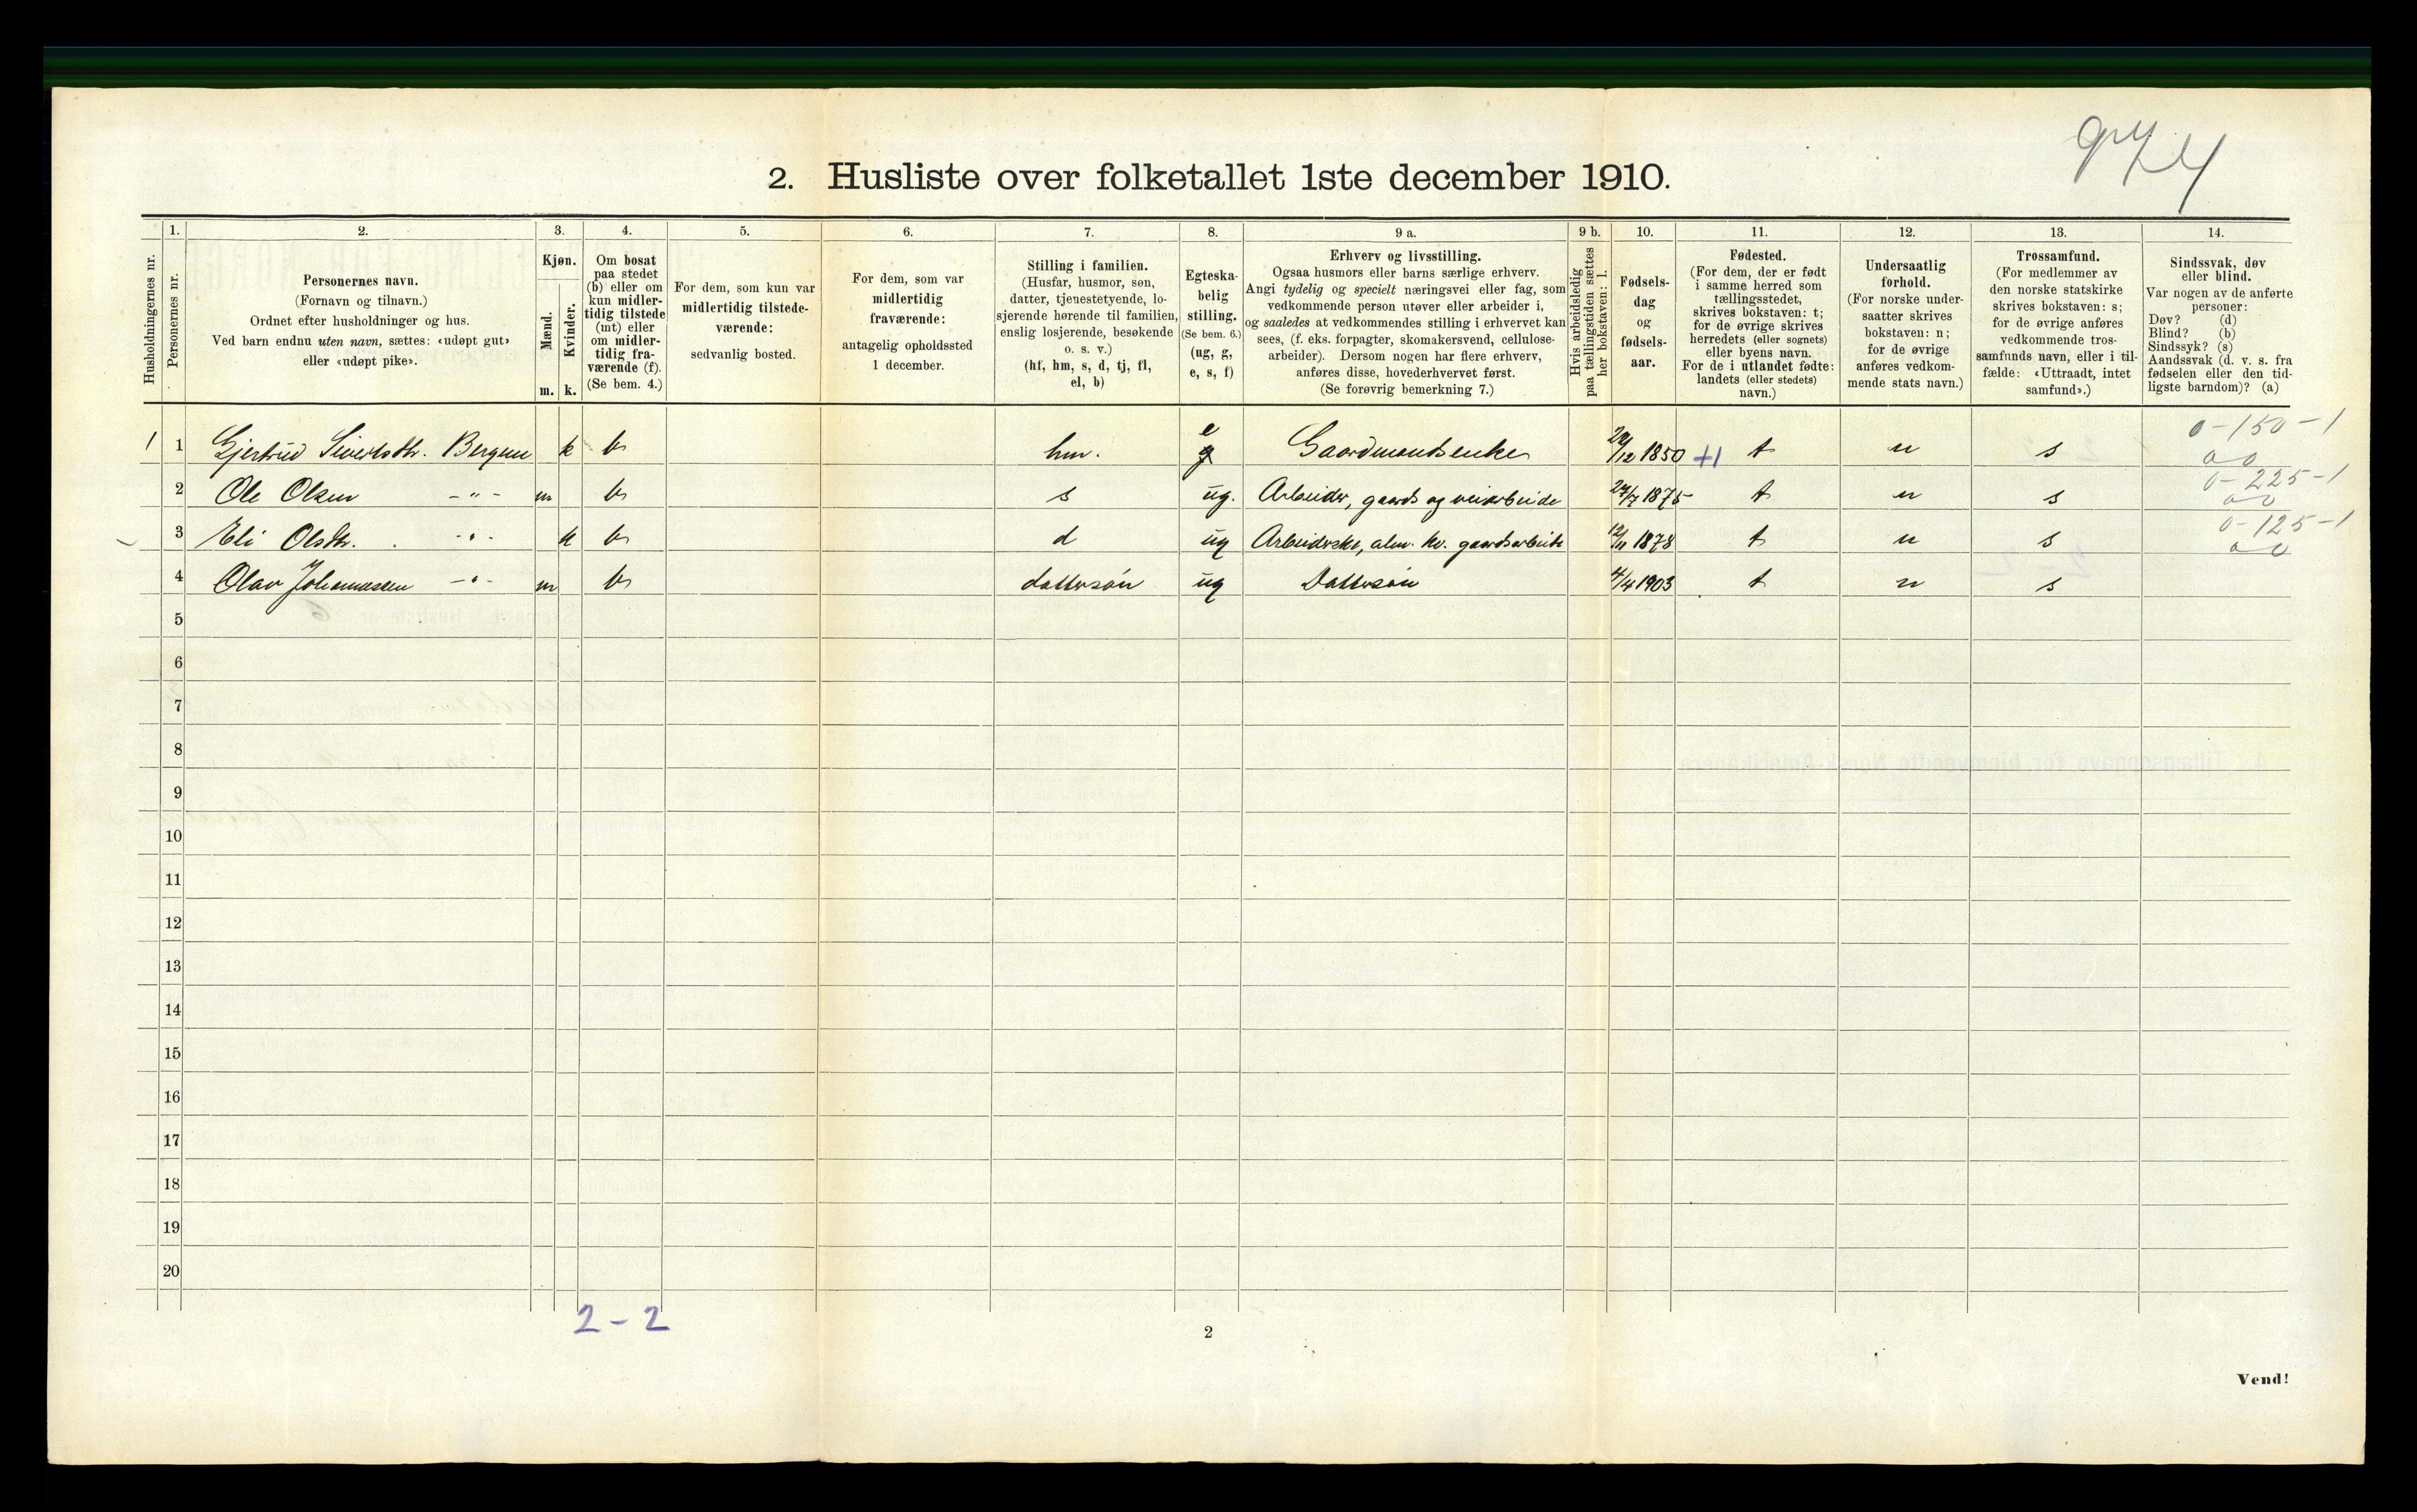 974
2. Husliste over folketallet 1ste december 1910.
Husholdningernes nr.
1.
Personernes nr.
2.
Personernes navn.
(Fornavn og tilnavn.)
Ordnet efter husholdninger og hus.
Ved barn endnu uten navn, sættes: «udøpt gut»
eller «udøpt pike».
3.
Kjøn.
Mænd.
Kvinder.
m. k.
4.
Om bosat
paa stedet
(b) eller om
kun midler-
tidig tilstede
(mt) eller
om midler-
tidig fra-
værende (f).
(Se bem. 4.)
5.
For dem, som kun var
midlertidig tilstede-
værende:
sedvanlig bosted.
6.
For dem, som var
midlertidig
fraværende:
antagelig opholdssted
1 december.
7.
Stilling i familien.
(Husfar, husmor, søn,
datter, tjenestetyende, lo-
sjerende hørende til familien,
enslig losjerende, besøkende
o. s. v.)
(hf, hm, s, d, tj, fl,
el, b)
8.
Egteska-
belig
stilling.
(Se bem. 6.)
(ug, g,
e, s, f)
9 a.
Erhverv og livsstilling.
Ogsaa husmors eller barns særlige erhverv.
Angi tydelig og specielt næringsvei eller fag, som
vedkommende person utøver eller arbeider i,
og saaledes at vedkommendes stilling i erhvervet kan
sees, (f. eks. forpagter, skomakersvend, cellulose-
arbeider). Dersom nogen har flere erhverv,
anføres disse, hovederhvervet først.
(Se forøvrig bemerkning 7.)
9 b.
Hvis arbeidsledig
paa tællingstiden sættes
her bokstaven: l.
10.
Fødsels-
dag
og
fødsels-
aar.
11.
Fødested.
(For dem, der er født
i samme herred som
tællingsstedet,
skrives bokstaven: t;
for de øvrige skrives
herredets (eller sognets)
eller byens navn.
For de i utlandet fødte:
landets (eller stedets)
navn.)
12.
Undersaatlig
forhold.
(For norske under-
saatter skrives
bokstaven: n;
for de øvrige
anføres vedkom-
mende stats navn.)
13.
Trossamfund.
(For medlemmer av
den norske statskirke
skrives bokstaven: s;
for de øvrige anføres
vedkommende tros-
samfunds navn, eller i til-
fælde: «Uttraadt, intet
samfund».)
14.
Sindssvak, døv
eller blind.
Var nogen av de anførte
personer:
Døv? (d)
Blind? (b)
Sindssyk? (s)
Aandssvak (d. v. s. fra
fødselen eller den tid-
ligste barndom)? (a)
0-150-1
1 1 Gjertrud Sivertsdtr. Bergem k b hm. e g Gaardmandsenke 29/12 1850 +1 t n s 00
0-225-1
2 Ole Olsen -"- m b s ug. Arbeider, gaards og veiarbeide 27/7 1875 t n s 00
0-125-1
3 Eli Olsdtr. -"- k b d ug Arbeiderske, alm. kv. gaardsarbeide 12/11 1878 t n s 00
4 Olav Johannessen -"- m b dattersøn ug Dattersøn 4/4 1903 t n s
5
6
7
8
9
10
11
12
13
14
15
16
17
18
19
20
2-2
2
Vend!